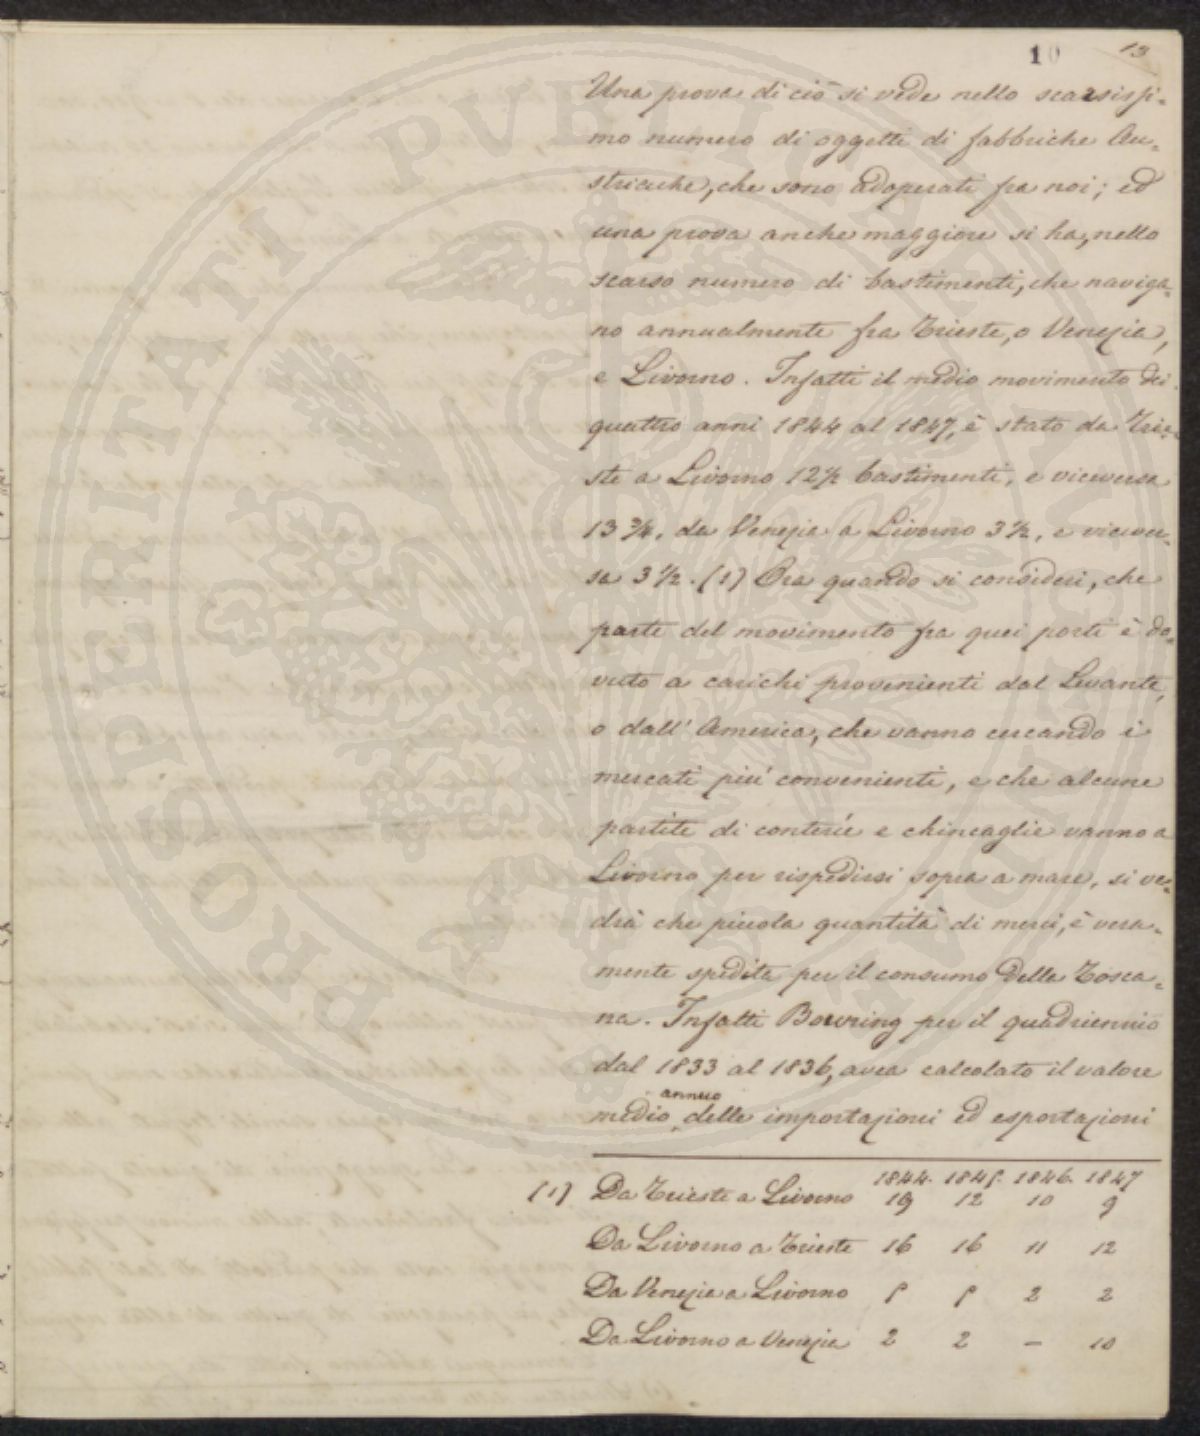 10 13
Una prova di ciò si vede nello scarsissi-
mo numero di oggetti di fabbriche Au-
striache, che sono adoperati fra noi; ed
una prova anche maggiore si ha, nello
scarso numero di bastimenti, che naviga-
no annualmente fra Trieste, o Venezia,
e Livorno. Infatti il medio movimento dei
quattro anni 1844 al 1847, è stato da Trie-
ste a Livorno 12½ bastimenti, e viceversa
13 ¾, da Venezia a Livorno 3½, e vicever-
sa 3½. (1) Ora quando si consideri, che
parte del movimento fra quei porti è do-
vuto a carichi provenienti dal Levante,
o dall'America, che vanno cercando i
mercati più convenienti, e che alcune
partite di conterie e chincaglie vanno a
Livorno per rispedirsi sopra a mare, si ve-
drà che piccola quantità di merci, è vera-
mente spedita per il consumo della Tosca-
na. Infatti Bowring per il quadriennio
dal 1833 al 1836, avea calcolato il valore
annuo
medio, delle importazioni ed esportazioni
1844. 1845. 1846. 1847
(1) Da Trieste a Livorno 19 12 10 9
Da Livorno a Trieste 16 16 11 12
Da Venezia a Livorno 5 5 2 2
Da Livorno a Venezia 2 2 — 10
PROSPERITATI PVBLICAE